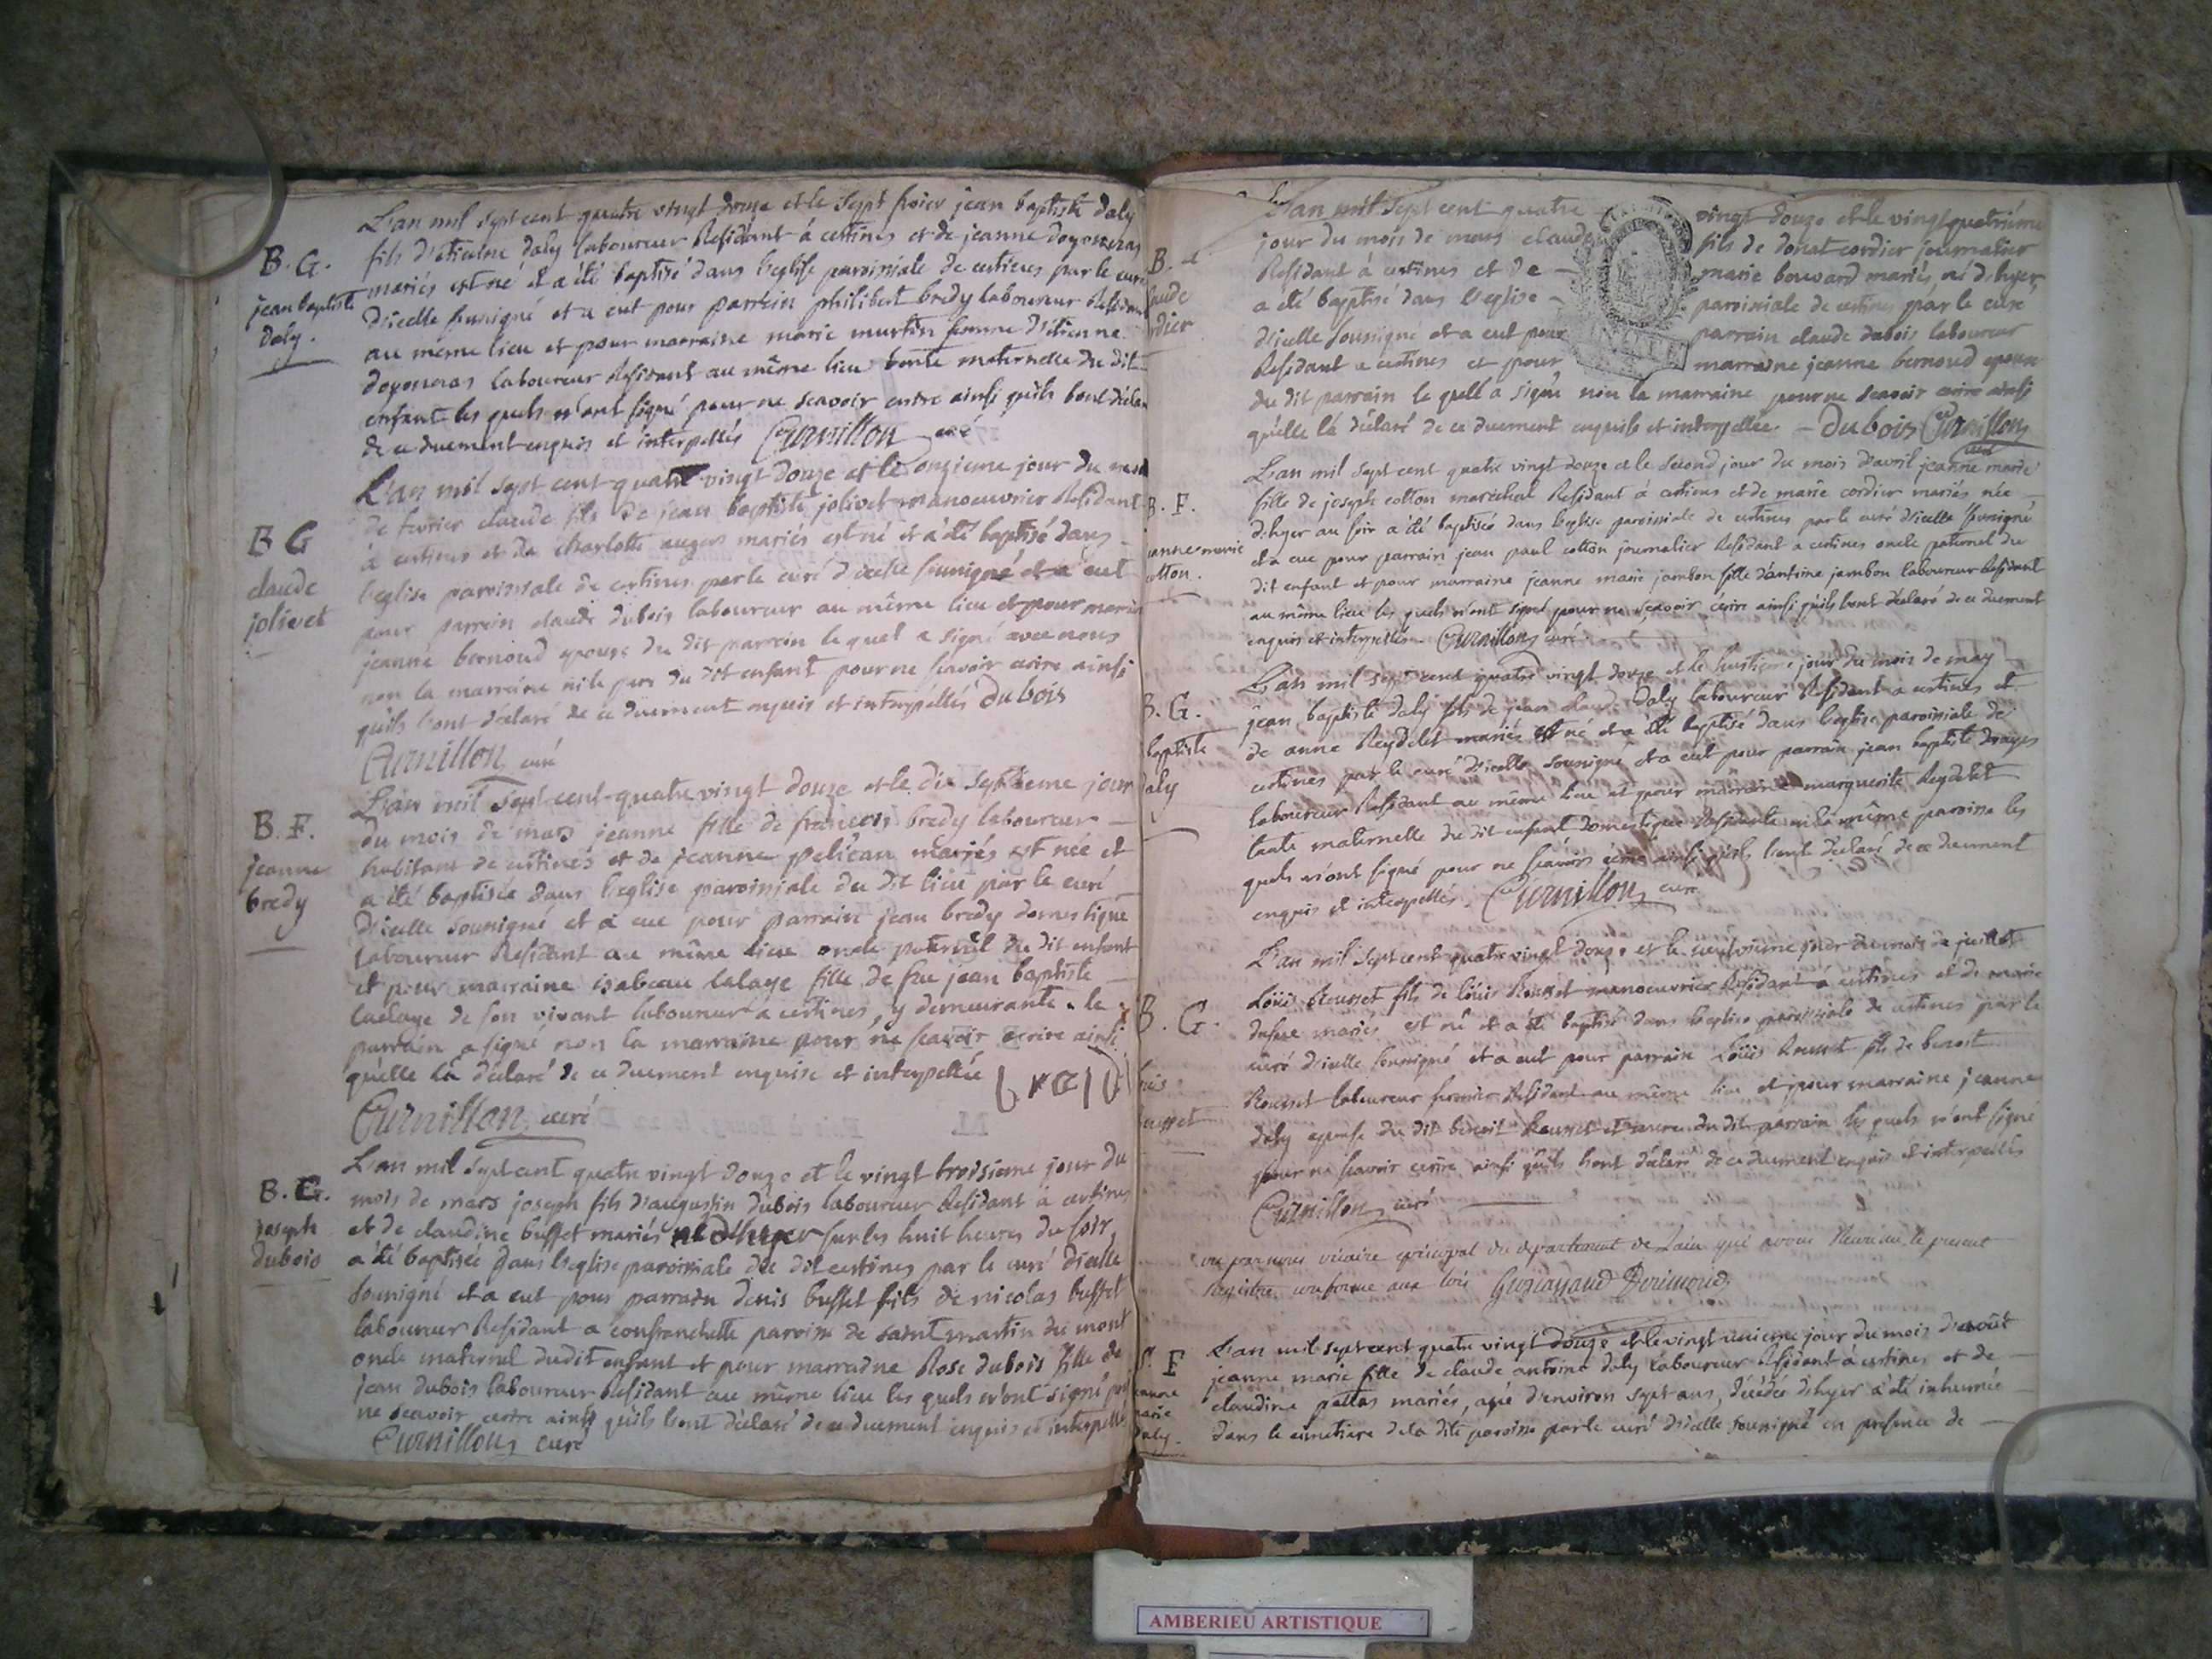 L'an mil sept cent quatre vingt douze et le sept fvier jean baptiste daly
B. G.
fils d'etienne daly laboureur Residant à certines et de jeanne doyoneras
jean baptiste
mariés est né et a été baptisé dans l'eglise paroissiale de certines par le curé
daly.
d'icelle sousigné et a eut pour parrein philibert bredy laboureur Residant
au même lieu et pour marraine marie murtin femme d'etienne
doyoneras laboureur Residant au même lieu tante maternelle du dit
enfant les quels n'ont signé pour ne scavoir ecrire ainsi quils l'ont déclaré
de ce duement enquis et interpellés Curnillon curé
L'an mil sept cent quatre vingt douze et le onzieme jour du mois
de fevrier claude fils de jean baptiste jolivet manoeuvrier Residant
B G
à certines et de charlotte auger mariés est né et a été baptisé dans
claude
l'eglise paroissiale de certines par le curé d'icelle sousigné et a eut
jolivet
pour parrein claude dubois laboureur au même lieu et pour marraine
jeanne bernoud epouse du dit parrein le quel a signé avec nous
non la marraine ni le pere du dit enfant pour ne scavoir ecrire ainsi
quils l'ont déclaré de ce duement enquis et interpellés Dubois
Curnillon curé
L'an mil sept cent quatre vingt douze et le dix septieme jour
B. F.
du mois de mars jeanne fille de francois bredy laboureur
jeanne
habitant de certines et de jeanne pelican mariés est née et
bredy
a été baptisée dans l'eglise paroissiale du dit lieu par le curé
d'icelle sousigné et a eue pour parrain jean bredy domestique
laboureur Residant au même lieu oncle paternel du dit enfant
et pour marraine isabeau lalaye fille de feu jean baptiste
laelaye de son vivant laboureur a certines, y demeurante. le
parrein a signé non la marraine pour ne scavoir ecrire ainsi
quelle la déclaré de ce duement enquise et interpellée
Curnillon curé
L'an mil sept cent quatre vingt douze et le vingt troisieme jour du
B. G.
mois de mars joseph fils d'augustin dubois laboureur Residant à certines
joseph
et de claudine buffet mariés né d'hyer sur les huit heures du soir
dubois
a été baptisée dans l'eglise paroissiale du dit certines par le curé d'icelle
sousigné et a eut pour parrain denis buffet fils de nicolas buffet
laboureur Residant a confranchette paroisse de saint martin du mont
oncle maternel dudit enfant et pour marraine Rose dubois fille de
jean dubois laboureur Residant au même lieu les quels n'ont signé pour
ne scavoir ecrire ainsi quils l'ont déclaré de ce duement enquis et interpellés
Curnillon curé
L'an mil sept cent quatre vingt douze et le vingt quatrième
jour du mois de mars claude fils de donat cordier journalier
Residant à certines et de marie bouvard mariés, né d'hyer,
a été baptisé dans l'eglise paroissiale de certines par le curé
d'icelle sousigné et a eut pour parrain claude dubois laboureur
Residant a certines et pour marraine jeanne bernoud epouse
du dit parrain le quel a signé non la marraine pour ne scavoir ecrire ainsi
quelle la déclaré de ce duement enquise et interpellée - Dubois Curnillon
curé
L'an mil sept cent quatre vingt douze et le second jour du mois d'avril jeanne marie
B. F.
fille de joseph cotton marechal Residant à certines et de marie cordier mariés née
d'hyer au soir a été baptisée dans l'eglise paroissiale de certines par le curé d'icelle sousigné
et a eue pour parrain jean paul cotton journalier Residant a certines oncle paternel du
cotton.
dit enfant et pour marraine jeanne marie jambon fille d'antoine jambon laboureur Residant
au même lieu les quels n'ont signé pour ne scavoir ecrire ainsi quils l'ont déclaré de ce duement
enquis et interpellés. Curnillon curé
L'an mil sept cent quatre vingt douze et le huitieme jour du mois de may
B. G.
jean baptiste daly fils de jean claude daly laboureur Residant a certines et
baptiste
de anne Reydelet mariés est né et a été baptisé dans l'eglise paroissiale de
daly
certines par le curé d'icelle sousigné et a eut pour parrain jean baptiste
laboureur Residant au même lieu et pour marraine marguerite Reydelet
tante maternelle du dit enfant domestique Residante en la même paroisse les
quels n'ont signé pour ne scavoir ecrire ainsi quils l'ont déclaré de ce duement
enquis et interpellés. Curnillon curé
L'an mil sept cent quatre vingt douze et le jour du mois de juillet
B. G.
Loüis Rousset fils de loüis Rousset manoeuvrier Residant à certines et de marie
mariés est né et a été baptisé dans l'eglise paroissiale de certines par le
curé d'icelle sousigné et a eut pour parrain Loüis Rousset fils de benoit
Rousset laboureur fermier Residant au même lieu et pour marraine jeanne
daly epouse du dit benoit Rousset et mere du dit parrain les quels n'ont signé
pour ne scavoir ecrire ainsi quils l'ont déclaré de ce duement enquis et interpellés
Curnillon curé
vu par nous vicaire episcopal du departement de Lain qui avons le present
registre conforme aux loix
L'an mil sept cent quatre vingt douze et le vingt unieme jour du mois d'août
S. F
jeanne marie fille de claude antoine daly laboureur Residant à certines et de
jeanne
claudine pallas mariés, agé d'environ sept ans, décédée d'hyer a été inhumée
marie
dans le cimetiere de la dite paroisse par le curé d'icelle sousigné en presence de
daly.
AMBERIEU ARTISTIQUE